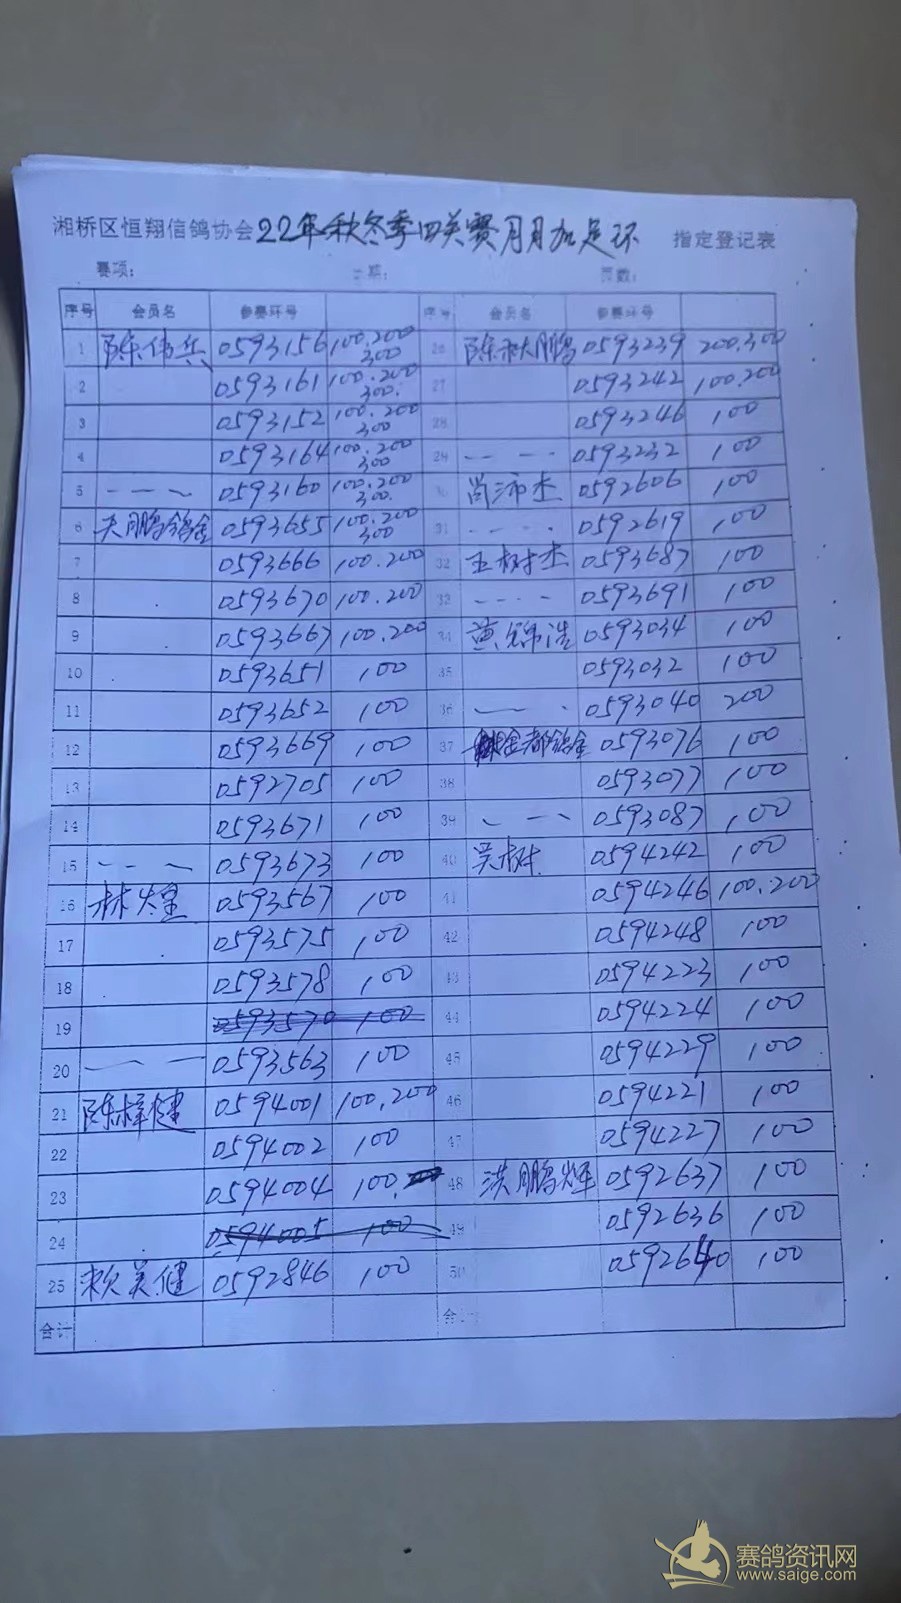 湘桥区恒翔信鸽协会22年秋冬季四关赛月月加足环 指定登记表
赛项: 页数:
序号 会员名 参赛环号 序号 会员名 参赛环号
1 陈伟兵 0593156 100.200 300 26 陈秋鹏 0593239 200.300
2 0593161 100.200 300. 27 0593242 100.200
3 0593152 100.200 300 28 0593246 100
4 0593164 100.200 300 29 0593232 100
5 0593160 100.200 300. 30 尚沛杰 0592606 100
6 天鹏鸽舍 0593655 100.200 300 31 0592619 100
7 0593666 100.200 32 王树杰 0593687 100
8 0593670 100.200 33 0593691 100
9 0593667 100.200 34 黄锦浩 0593034 100
10 0593651 100 35 0593032 100
11 0593652 100 36 0593040 200
12 0593669 100 37 金都鸽舍 0593076 100
13 0592705 100 38 0593077 100
14 0593671 100 39 0593087 100
15 0593673 100 40 吴树 0594242 100
16 林煌 0593567 100 41 0594246 100.200
17 0593575 100 42 0594248 100
18 0593578 100 43 0594223 100
19 0593570 100 44 0594224 100
20 0593563 100 45 0594229 100
21 陈梓健 0594001 100.200 46 0594221 100
22 0594002 100 47 0594227 100
23 0594004 100. 48 洪鹏辉 0592637 100
24 0594005 100 49 0592636 100
25 赖美健 0592846 100 50 0592640 100
合计 合计
赛鸽资讯网
www.saige.com